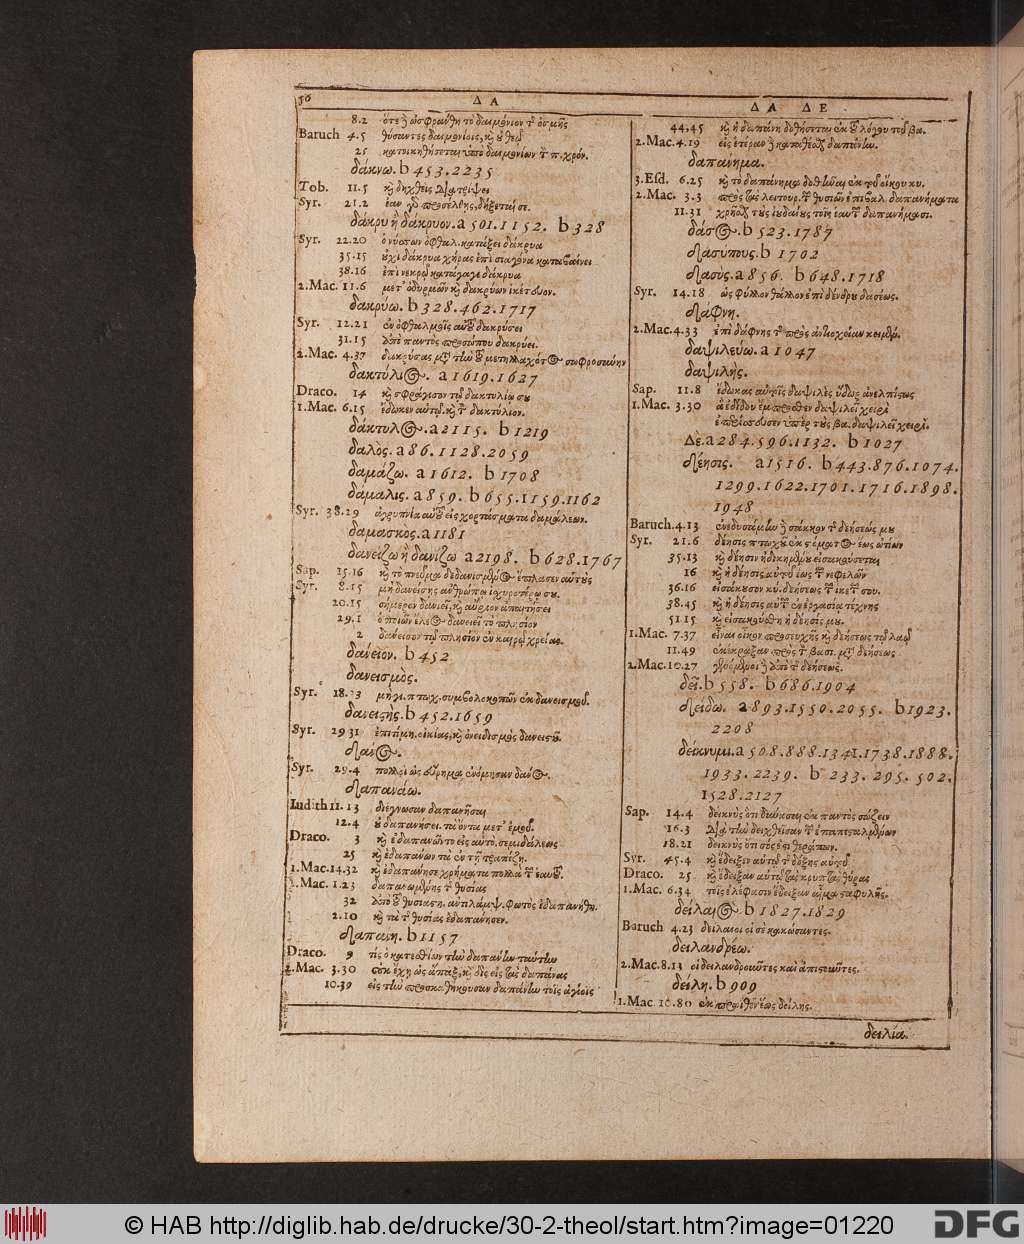 56 Δ Α
8.2 ὅτε ὠσφράνθη τὸ δαιμόνιον τ ὀσμῆς
Baruch 4.5 θύσαντες δαιμονίοις, κ ὐ θεῷ
25 κατοικηθήσεται ὑπὸ δαιμονίων τ π. χρόν.
δάκνω. b 453.2235
Tob. 11.5 κ δηχθεὶς διατρίψει
Syr. 21.2 ἐαν γδ προσέλθης, δήξεταί σε.
δάκρυ ἢ δάκρυον. a 501.1152. b 328
Syr. 22.20 ὁ νύσσων ὀφθαλ. κατάξει δάκρυα
35.15 οὐχὶ δάκρυα χήρας ἐπὶ σιαγόνα καταβαίνει
38.16 ἐπὶ νεκρῷ κατάγαγε δάκρυα
2.Mac. 11.6 μετ' ὀδυρμῶν κ δακρύων ἱκέτευον.
δακρύω. b 328.462.1717
Syr. 12.21 ἐν ὀφθαλμοῖς αὐτοῦ δακρύσει
31.15 ἀπὸ παντὸς προσώπου δακρύει.
2.Mac. 4.37 δακρύσας μτ τὴν τοῦ μετηλλαχότος σωφροσύνην
δακτύλιος. a 1619.1627
Draco. 14 κ σφράγισον τῷ δακτυλίῳ σου
1.Mac. 6.15 ἔδωκεν αὐτῷ. κ τ δακτύλιον.
δάκτυλος. a 2115. b 1219
δαλὸς. a 86.1128.2059
δαμάζω. a 1612. b 1708
δάμαλις. a 859. b 655.1159.1162
Syr. 38.29 ἀγρυπνία αὐτοῦ εἰς χορτάσματα δαμάλεων.
δαμασκος. a 1181
δανείζω ἢ δανίζω a 2198. b 628.1767
Sap. 15.16 κ τὸ πνεῦμα δεδανισμένος ἔπλασεν αὐτούς
Syr. 8.15 μὴ δανείσης ἀνθρώπῳ ἰχυροτέρῳ σου.
20.15 σήμερον δανιεῖ, κ αὔριον ἀπαιτήσει
29.1 ὁ ποιῶν ἔλεος δανειεῖ τῷ πλησίον
2 δάνεισον τῷ πλησίον ἐν καιρῷ χρείας.
δανειον. b 452
δανεισμὸς.
Syr. 18.33 μὴ γι. πτωχ. συμβολοκοπῶν ἐκ δανεισμοῦ.
δανειστής. b 452.1659
Syr. 29 31 ἐπιτίμη. οἰκίας, κ ὀνειδισμὸς δανειστοῦ.
δανος.
Syr. 29.4 πολλοὶ ὡς εὕρημα ἐνόμισαν δάνος.
δαπανάω.
Iudith 11.13 διέγνωσαν δαπανῆσαι
12.4 οὐ δαπανήσει. τὰ ὄντα μετ' ἐμοῦ.
Draco. 3 κ ἐδαπανῶντο εἰς αὐτὸ. σεμιδάλεως
25 κ ἐδαπάνων τὰ ἐν τῇ τραπέζῃ.
1.Mac. 14.32 κ ἐδαπάνησε χρήματα πολλὰ τ ἑαυτοῦ.
2.Mac. 1.23 δαπανωμένης τ θυσίας
32 ἀπὸ τοῦ θυσιαστη. ἀντιλάμψ. φωτὸς ἐδαπανήθη.
2.10 κ τὰ τ θυσίας ἐδαπάνησεν.
δαπανη. b 1157
Draco. 9 τίς ὁ κατεσθίων τὴν δαπάνην ταύτην
2.Mac. 3.30 οὐκ ἔχῃ ὡς ἅπαξ, κ δὶς εἰς τὰς δαπάνας
10.39 εἰς τὴν προσκαθήκουσαν δαπάνην τοῖς ἁγίοις
Δ Α Δ Ε
44.45 κ ἡ δαπάνη δοθήσεται ἐκ τοῦ λόγου τοῦ βα.
2.Mac. 4.19 εἰς ἑτέραν καταθέσθαι δαπάνην.
δαπάνημα.
3.Esd. 6.25 κ τὸ δαπάνημα δοθῆναι ἐκ τοῦ οἴκου κυ.
2.Mac. 3.3 πρὸς τὰς λειτουρ. τ θυσιῶν ἐπιβαλ. δαπανήματα
11.31 χρῆσθαι τοὺς ἰουδαίους τοῖς ἑαυτ δαπανήμασι.
δάσος. b 523.1787
δασυπους. b 1702
δασυς. a 856. b 648.1718
Syr. 14.18 ὡς φύλλον θάλλον ἐπὶ δένδρου δασέως.
δαφνη.
2.Mac. 4.33 ἐπὶ δάφνης τ πρὸς ἀντιοχείαν κειμέν.
δαψιλεύω. a 1047
δαψιλὴς.
Sap. 11.8 ἔδωκας αὐτοῖς δαψιλὲς ὕδωρ ἀνελπίστως
1.Mac. 3.30 ἃ ἐδίδου ἔμπροσθεν δαψιλεῖ χειρὶ
ἐπερίσσευσεν ὑπὲρ τοὺς βα. δαψιλεῖ χειρί.
Δὲ. a 284.596.1132. b 1027
δέησις. a 1516. b 443.876.1074.
1299.1622.1701.1716.1898.
1948
Baruch. 4.13 ἐνεδυσάμην σάκκον τ δεήσεώς μου
Syr. 21.6 δέησις πτωχοῦ ἐκ στόματος ἕως ὠτίων
35.13 κ δέησιν ἠδικημένου εἰσακούσεται
16 κ ἡ δέησις αὐτοῦ ἕως τ νεφελῶν
36.16 εἰσάκουσον κυ. δεήσεως τ ἱκετ σου.
38.45 κ ἡ δέησις αὐτ ἐν ἐργασίᾳ τέχνης
51.15 κ εἰσηκούσθη ἡ δέησίς μου.
1.Mac. 7.37 εἶναι οἶκον προσευχῆς κ δεήσεως τῷ λαῷ
11.49 ἐκέκραξαν πρὸς τ βασι. μτ δεήσεως
2.Mac. 10.27 γενόμενοι ἀπὸ τ δεήσεως.
δεῖ. b 558. b 686.1904
δείδω. a 893.1550.2055. b 1923.
2208
δείκνυμι. a 508.888.1341.1738.1888.
1933.2239. b 233.295.502.
1528.2127
Sap. 14.4 δεικνὺς ὅτι δύνασαι ἐκ παντὸς σώζειν
16.3 διὰ τὴν δειχθεῖσαν τ ἐπαπεσταλμένων
18.21 δεικνὺς ὅτι σός ἐστι θεράπων.
Syr. 45.4 κ ἔδειξεν αὐτῷ τ δόξης αὐτοῦ
Draco. 25 κ ἔδειξαν αὐτῷ τὰς κρυπτὰς θύρας
1.Mac. 6.34 τοῖς ἐλέφασιν ἔδειξαν αἷμα σταφυλῆς.
δείλαιος. b 1827.1829
Baruch 4.23 δείλαιοι οἱ σὲ κακώσαντες.
δειλανδρέω.
2.Mac. 8.13 οἱ δειλανδροῦντες καὶ ἀπιστοῦντες.
δείλη. b 909
1.Mac. 10.80 ἐκ πρωίθεν ἕως δείλης.
δειλία.
© HAB http://diglib.hab.de/drucke/30-2-theol/start.htm?image=01220
DFG